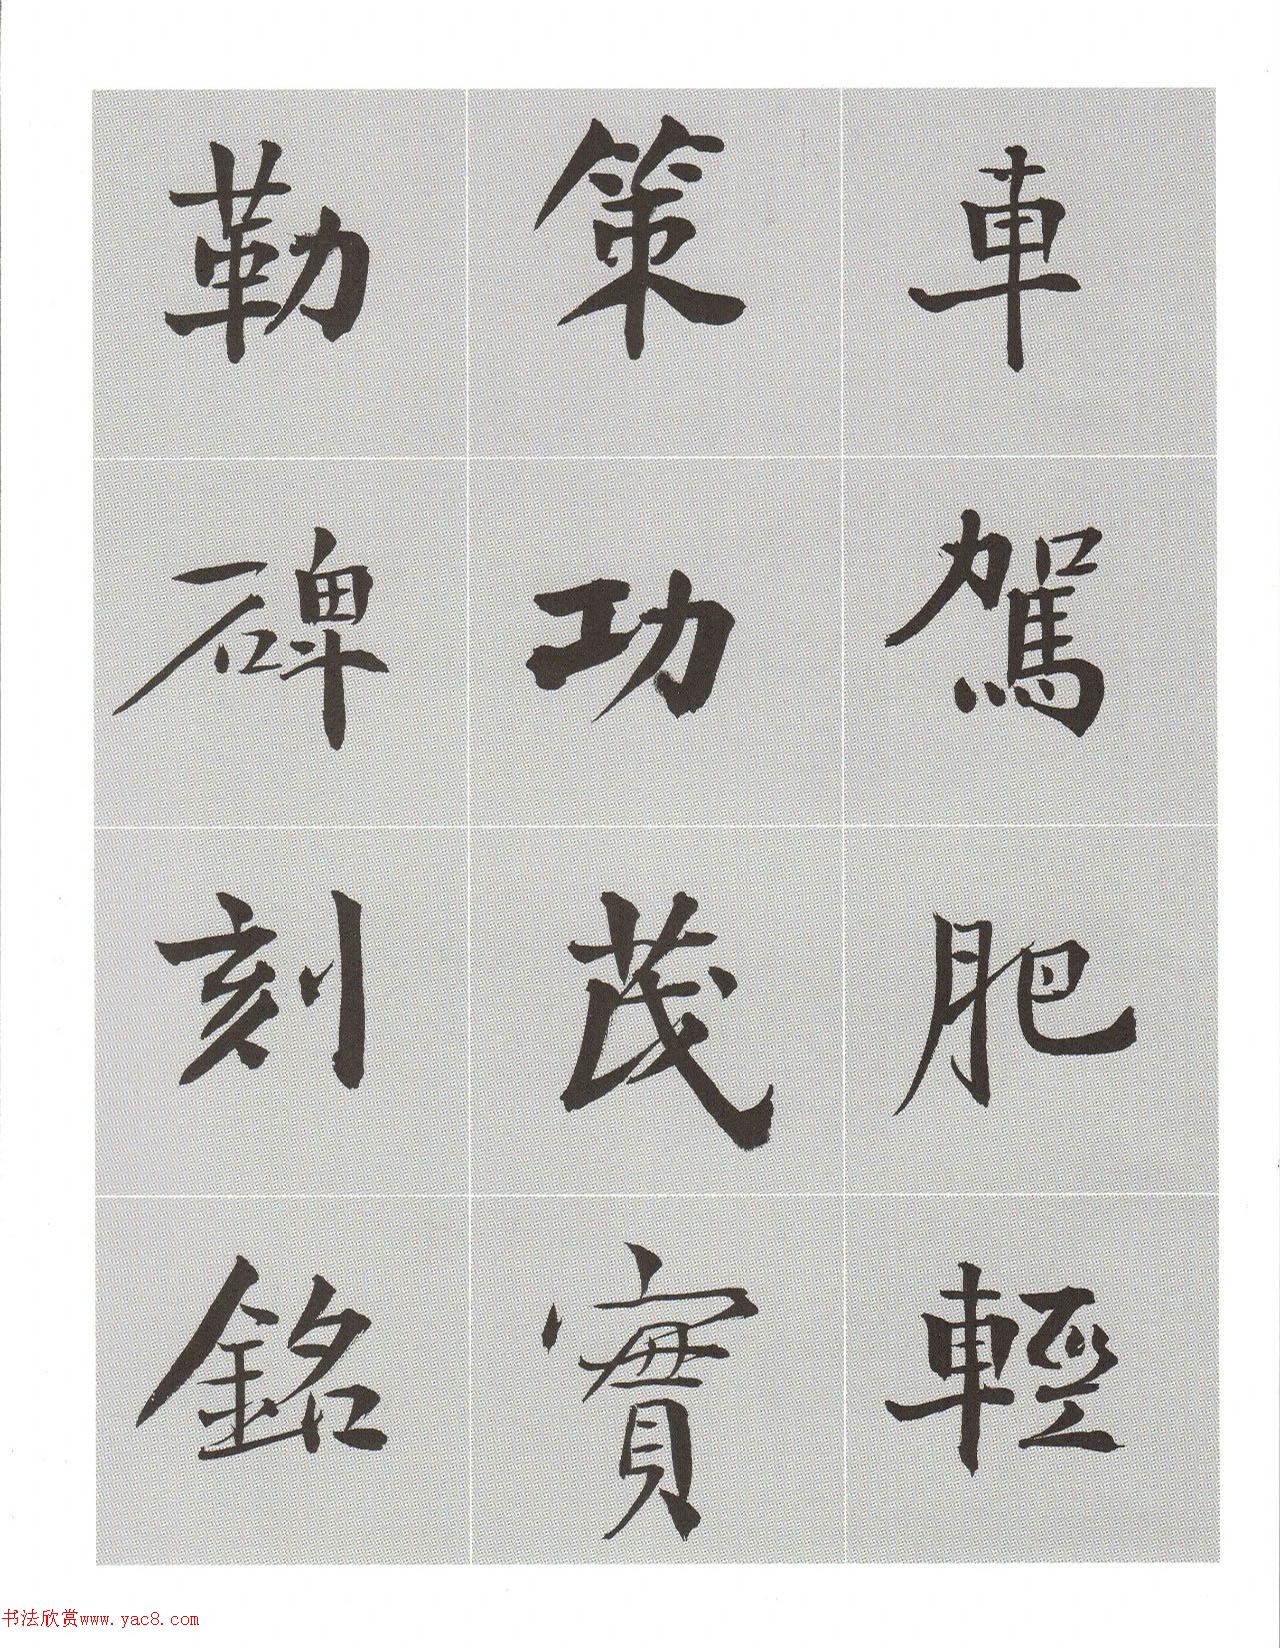 車駕肥輕
策功茂實
勒碑刻銘
书法欣赏www.yac8.com